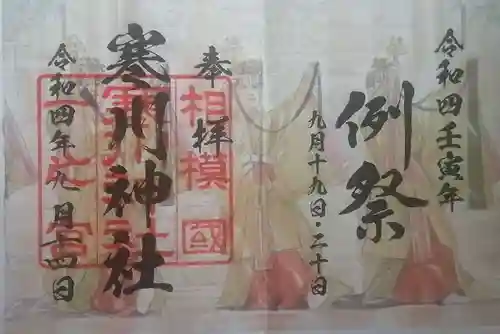 令和四壬寅年
例祭
九月十九日・二十日
奉拝
相模國
寒川神社
一之宮
令和四年九月十四日